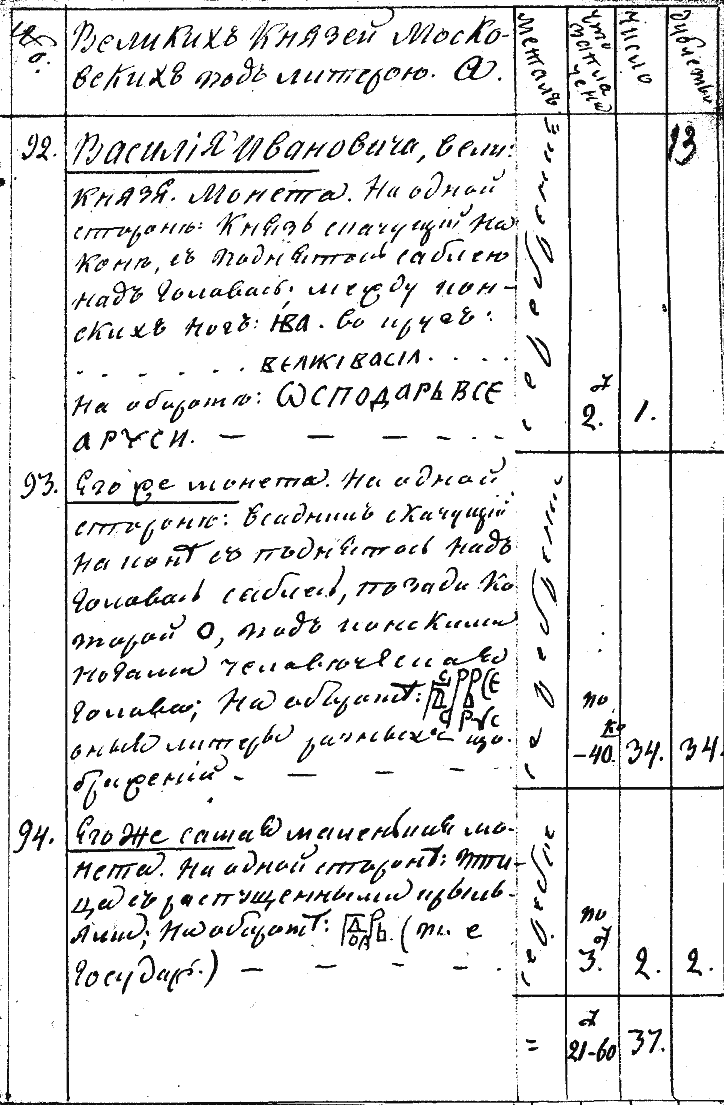 № Великихъ Князей Моско- Металъ Что заплачено Число Дублеты
вскихъ подъ литерою. А.
92. Василія Ивановича, вели: 13
Князя. Монета. На одной
стороне: Князь скачущій на
коне, съ поднятою саблею
надъ головась; между кон-
скихъ ногъ: IВА. во кругъ:
. . . . . . . ВЕЛЖIВАСIЛ. . . . .
На обороте: ОСПОДАРЬ ВСЕ
А РУСИ. — — — серебреник 2. 1.
93. Его же монета. На одной
стороне: всадникъ скачущій
на конѣ съ поднятось надъ
головась саблей, позади ко
торой О, подъ конскими
ногами человѣческая
голова; На оборотѣ:
оныя литеры разныхъ изо-
браженій — — — серебреник по ко -40. 34. 34.
94. Его же самая маленькая мо-
нета. На одной сторонѣ: пти-
ца съ распущенными крыль-
ями; На оборотѣ: (т. е
Государь.) — — — серебро по 3. 2. 2.
= 21-60 37.